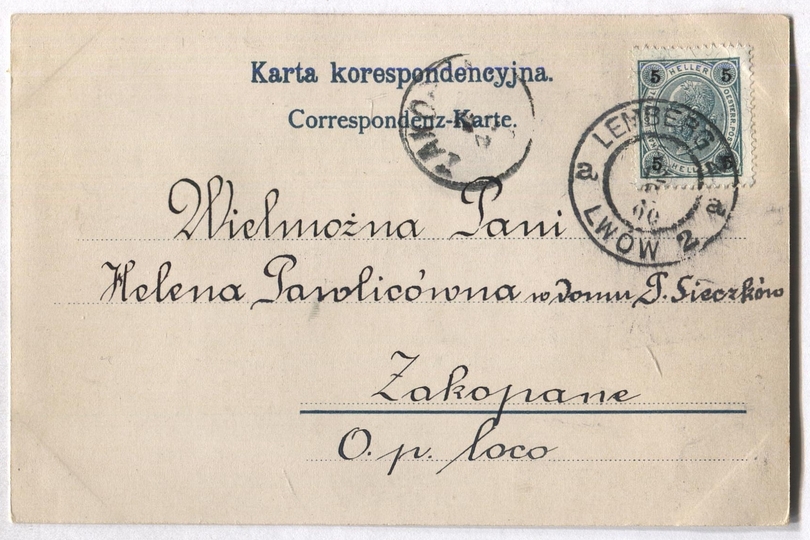 Karta korespondencyjna.
Correspondenz-Karte.
5 HELLER 5
5 5
LEMBERG
a a
LWÓW 2
00
ZAKO
Wielmożna Pani
Helena Pawlicówna w domu P. Sieczków
Zakopane
O. p. loco